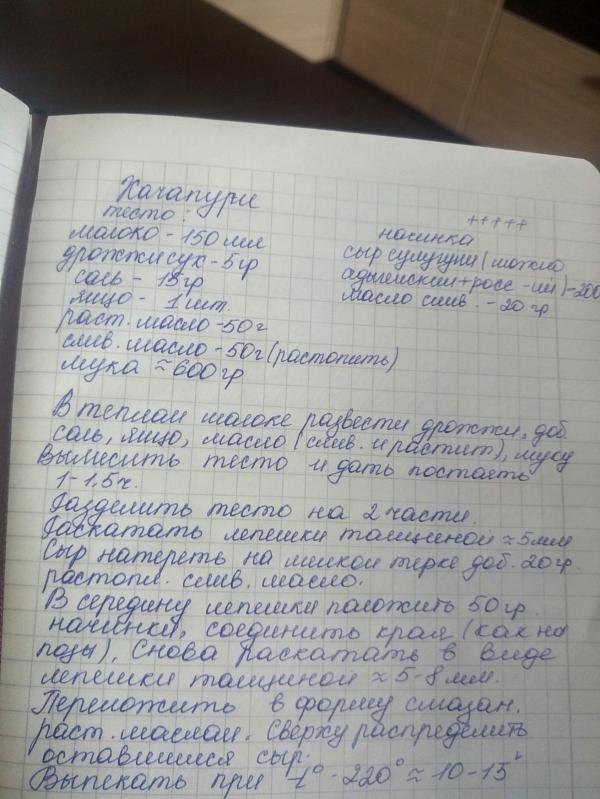 Хачапури
тесто:
молоко - 150 мл
дрожжи сух - 5 гр
соль - 15 гр
яйцо - 1 шт.
раст. масло - 50 г
слив. масло - 50 г (растопить)
мука ≈ 600 гр
+++++
начинка
сыр сулугуни (можно
адыгейский + росс-ий) - 200
масло слив. - 20 гр
В теплом молоке развести дрожжи, доб.
соль, яйцо, масло (слив. и растит), муку
Вымесить тесто и дать постоять
1-1,5 ч.
Разделить тесто на 2 части.
Раскатать лепешки толщиной ≈ 5мм
Сыр натереть на мелкой терке доб. 20 гр.
растопл. слив. масло.
В середину лепешки положить 50 гр.
начинки, соединить края (как на
позы). Снова раскатать в виде
лепешки толщиной ≈ 5-8 мм.
Переложить в форму смазан.
раст. маслом. Сверху распределить
оставшийся сыр.
Выпекать при t° - 220° ≈ 10-15'